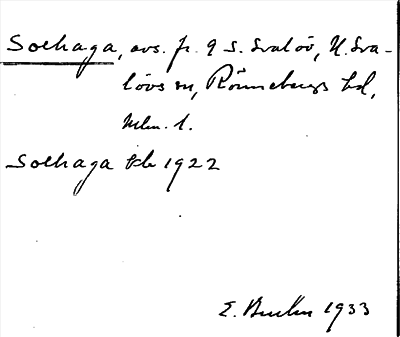 Solhaga, avs. fr. 9 S. Svalöv, N. Sva-
lövs sn, Rönnebergs hd,
Mlm. l.
Solhaga kb 1922
E. 1933